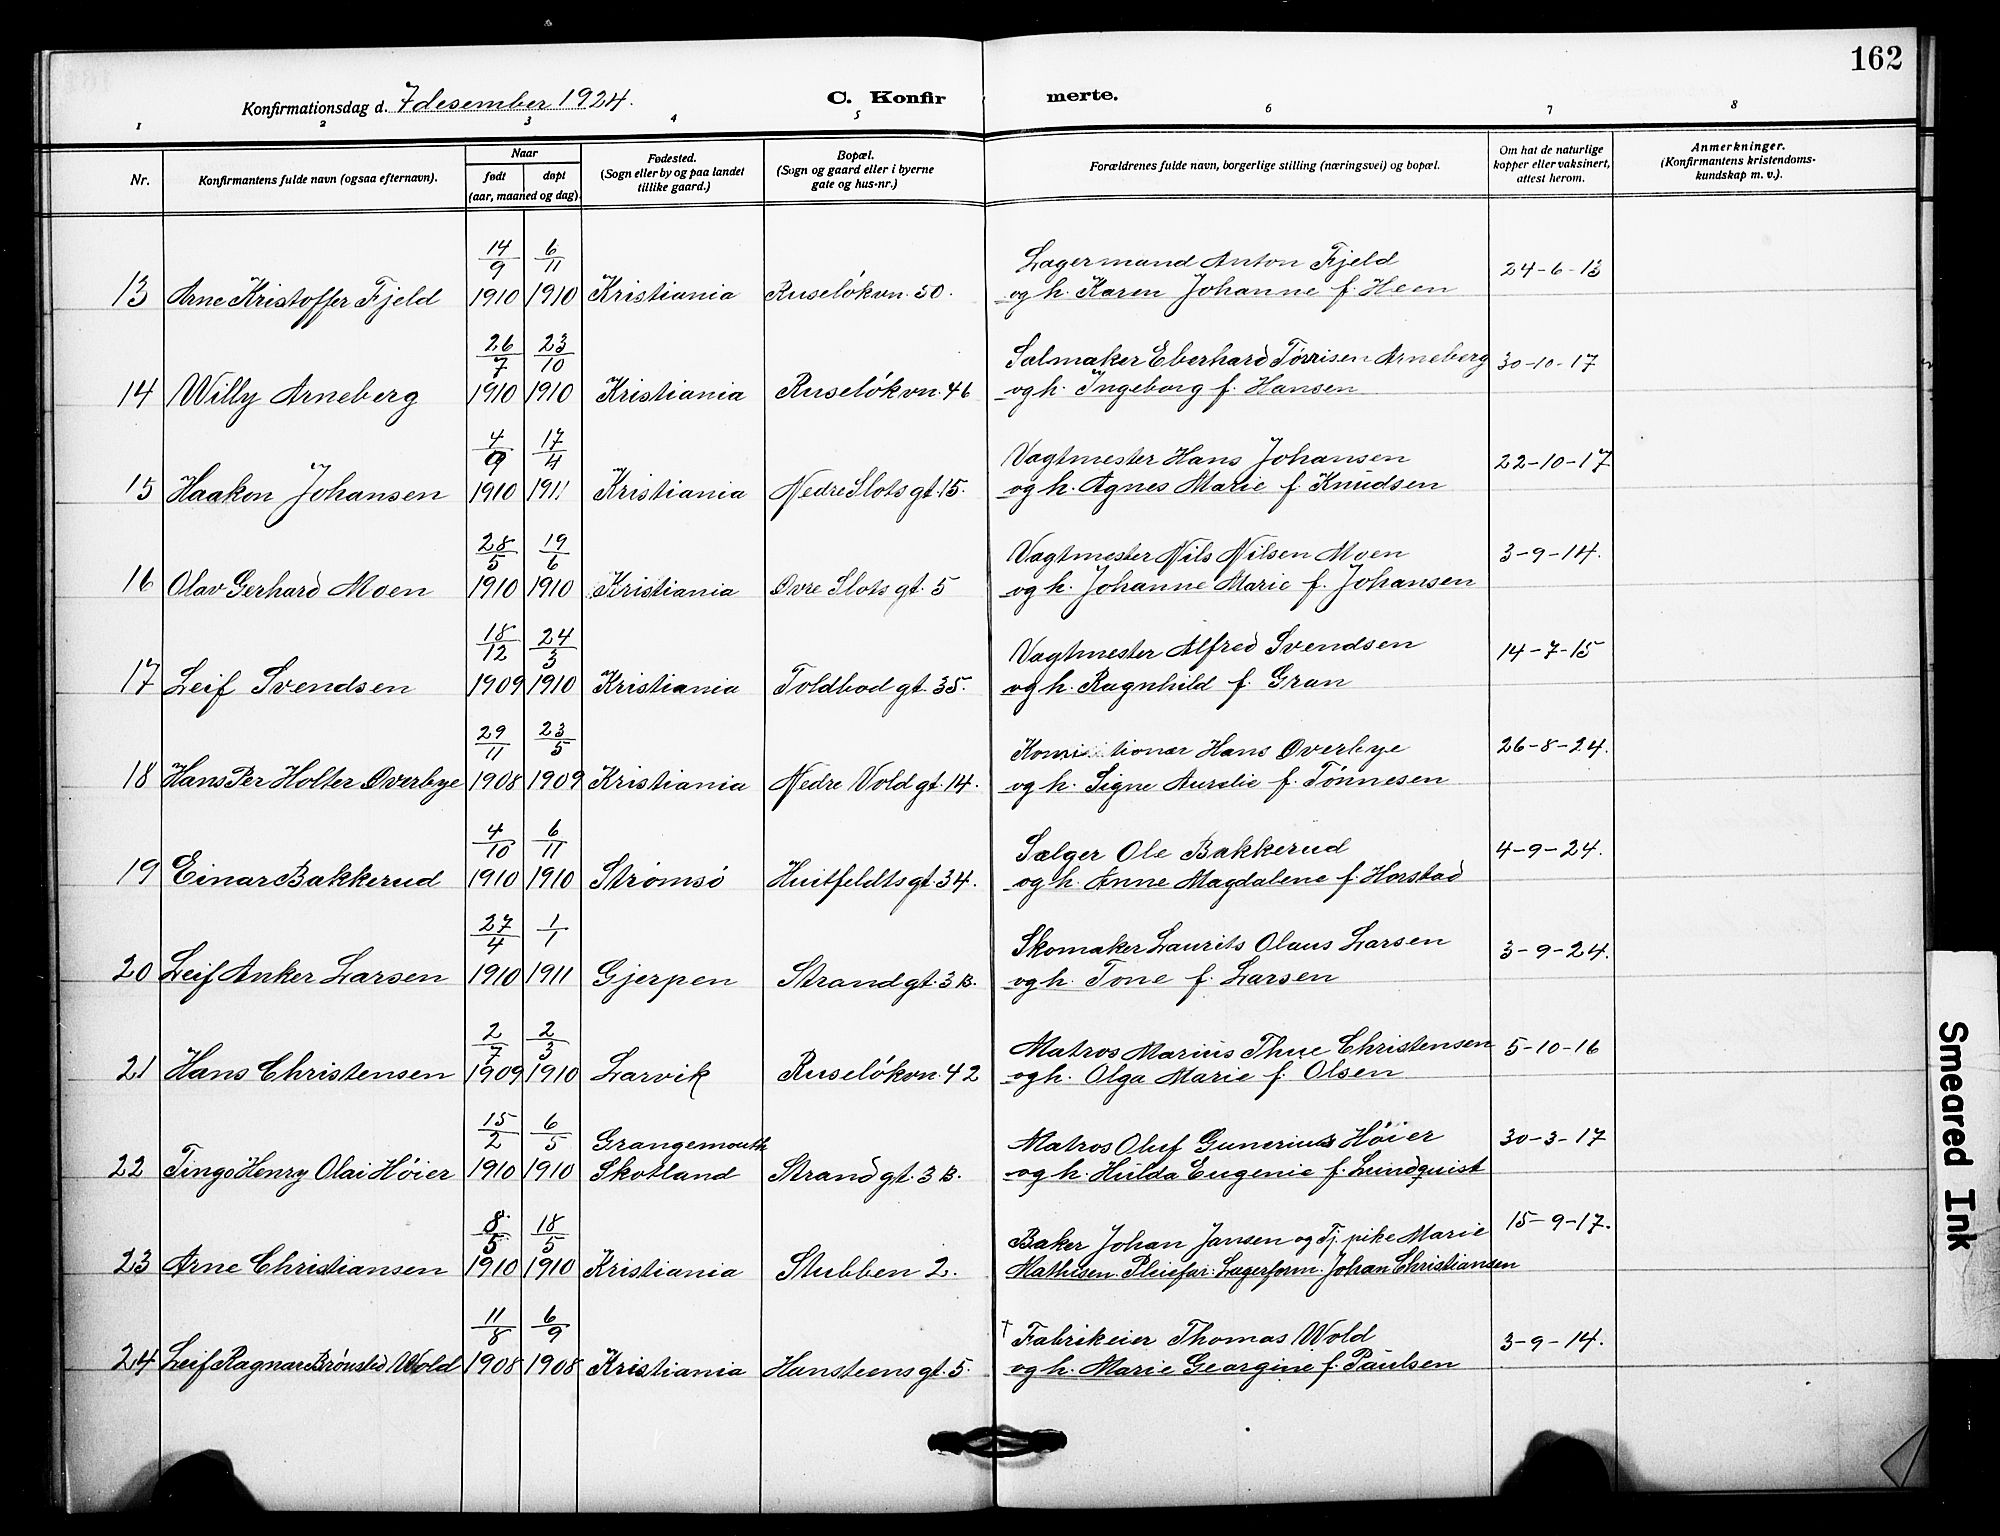 162
Konfirmationsdag d. 7 desember 1924.
C. Konfirmerte.
1 2 3 4 5 6 7 8
Nr. Konfirmantens fulde navn (ogsaa efternavn). Naar født døpt (aar, maaned og dag). Fødested. (Sogn eller by og paa landet tillike gaard.) Bopæl. (Sogn og gaard eller i byerne gate og hus-nr.) Forældrenes fulde navn, borgerlige stilling (næringsvei) og bopæl. Om hat de naturlige kopper eller vaksinert, attest herom. Anmerkninger. (Konfirmantens kristendoms-kundskap m. v.).
14/9 6/11 Lagermand Anton Fjeld 24-6-13
13 Arne Kristoffer Fjeld 1910 1910 Kristiania Ruseløkvn. 50. og h. Karen Johanne f. Heen
26/7 23/10 Salmaker Eberhard Tørrisen Arneberg 30-10-17
14 Willy Arneberg 1910 1910 Kristiania Ruseløkvn. 46 og h. Ingeborg f. Hansen
4/9 17/4 Vagtmester Hans Johansen 22-10-17
15 Haakon Johansen 1910 1911 Kristiania Nedre Slotsgt. 15. og h. Agnes Marie f. Knudsen
28/5 19/6 Vagtmester Nils Nilsen Moen 3-9-14.
16 Olav Gerhard Moen 1910 1910 Kristiania Øvre Slotsgt. 5 og h. Johanne Marie f. Johansen
18/12 24/3 Vagtmester Alfred Svendsen 14-7-15
17 Leif Svendsen 1909 1910 Kristiania Toldbodgt. 35. og h. Ragnhild f. Gran
29/11 23/5 Hans Øverbye 26-8-24.
18 Hans Per Holter Øverbye 1908 1909 Kristiania Nedre Voldgt. 14. og h. Signe Aurelie f. Tønnesen
4/10 6/11 Sælger Ole Bakkerud 4-9-24.
19 Einar Bakkerud 1910 1910 Strømsø Huitfeldtsgt. 34. og h. Anne Magdalene f. Horstad
27/4 1/1 Skomaker Laurits Olaus Larsen 3-9-24.
20 Leif Anker Larsen 1910 1911 Gjerpen Strandgt. 3 B. og h. Tone f. Larsen
2/7 2/3 Matros Marius Thue Christensen 5-10-16
21 Hans Christensen 1909 1910 Larvik Ruseløkvn. 42 og h. Olga Marie f. Olsen
15/2 6/5 Grangemouth Matros Oluf Gunerius Høier 30-3-17
22 Henry Olai Høier 1910 1910 Skotland Strandgt. 3 B. og h. Hulda Eugenie f. Lundquist
8/5 18/5 Baker Johan Jansen og Tj. pike Marie 15-9-17.
23 Arne Christiansen 1910 1910 Kristiania Stubben 2. Mathisen. Pleiefar: Lagerform. Johan Christiansen
11/8 6/9 † Fabrikeier Thomas Wold 3-9-14.
24 Leif Ragnar Brønsted Wold 1908 1908 Kristiania Hansteensgt. 5. og h. Marie Georgine f. Paulsen
Smeared Ink